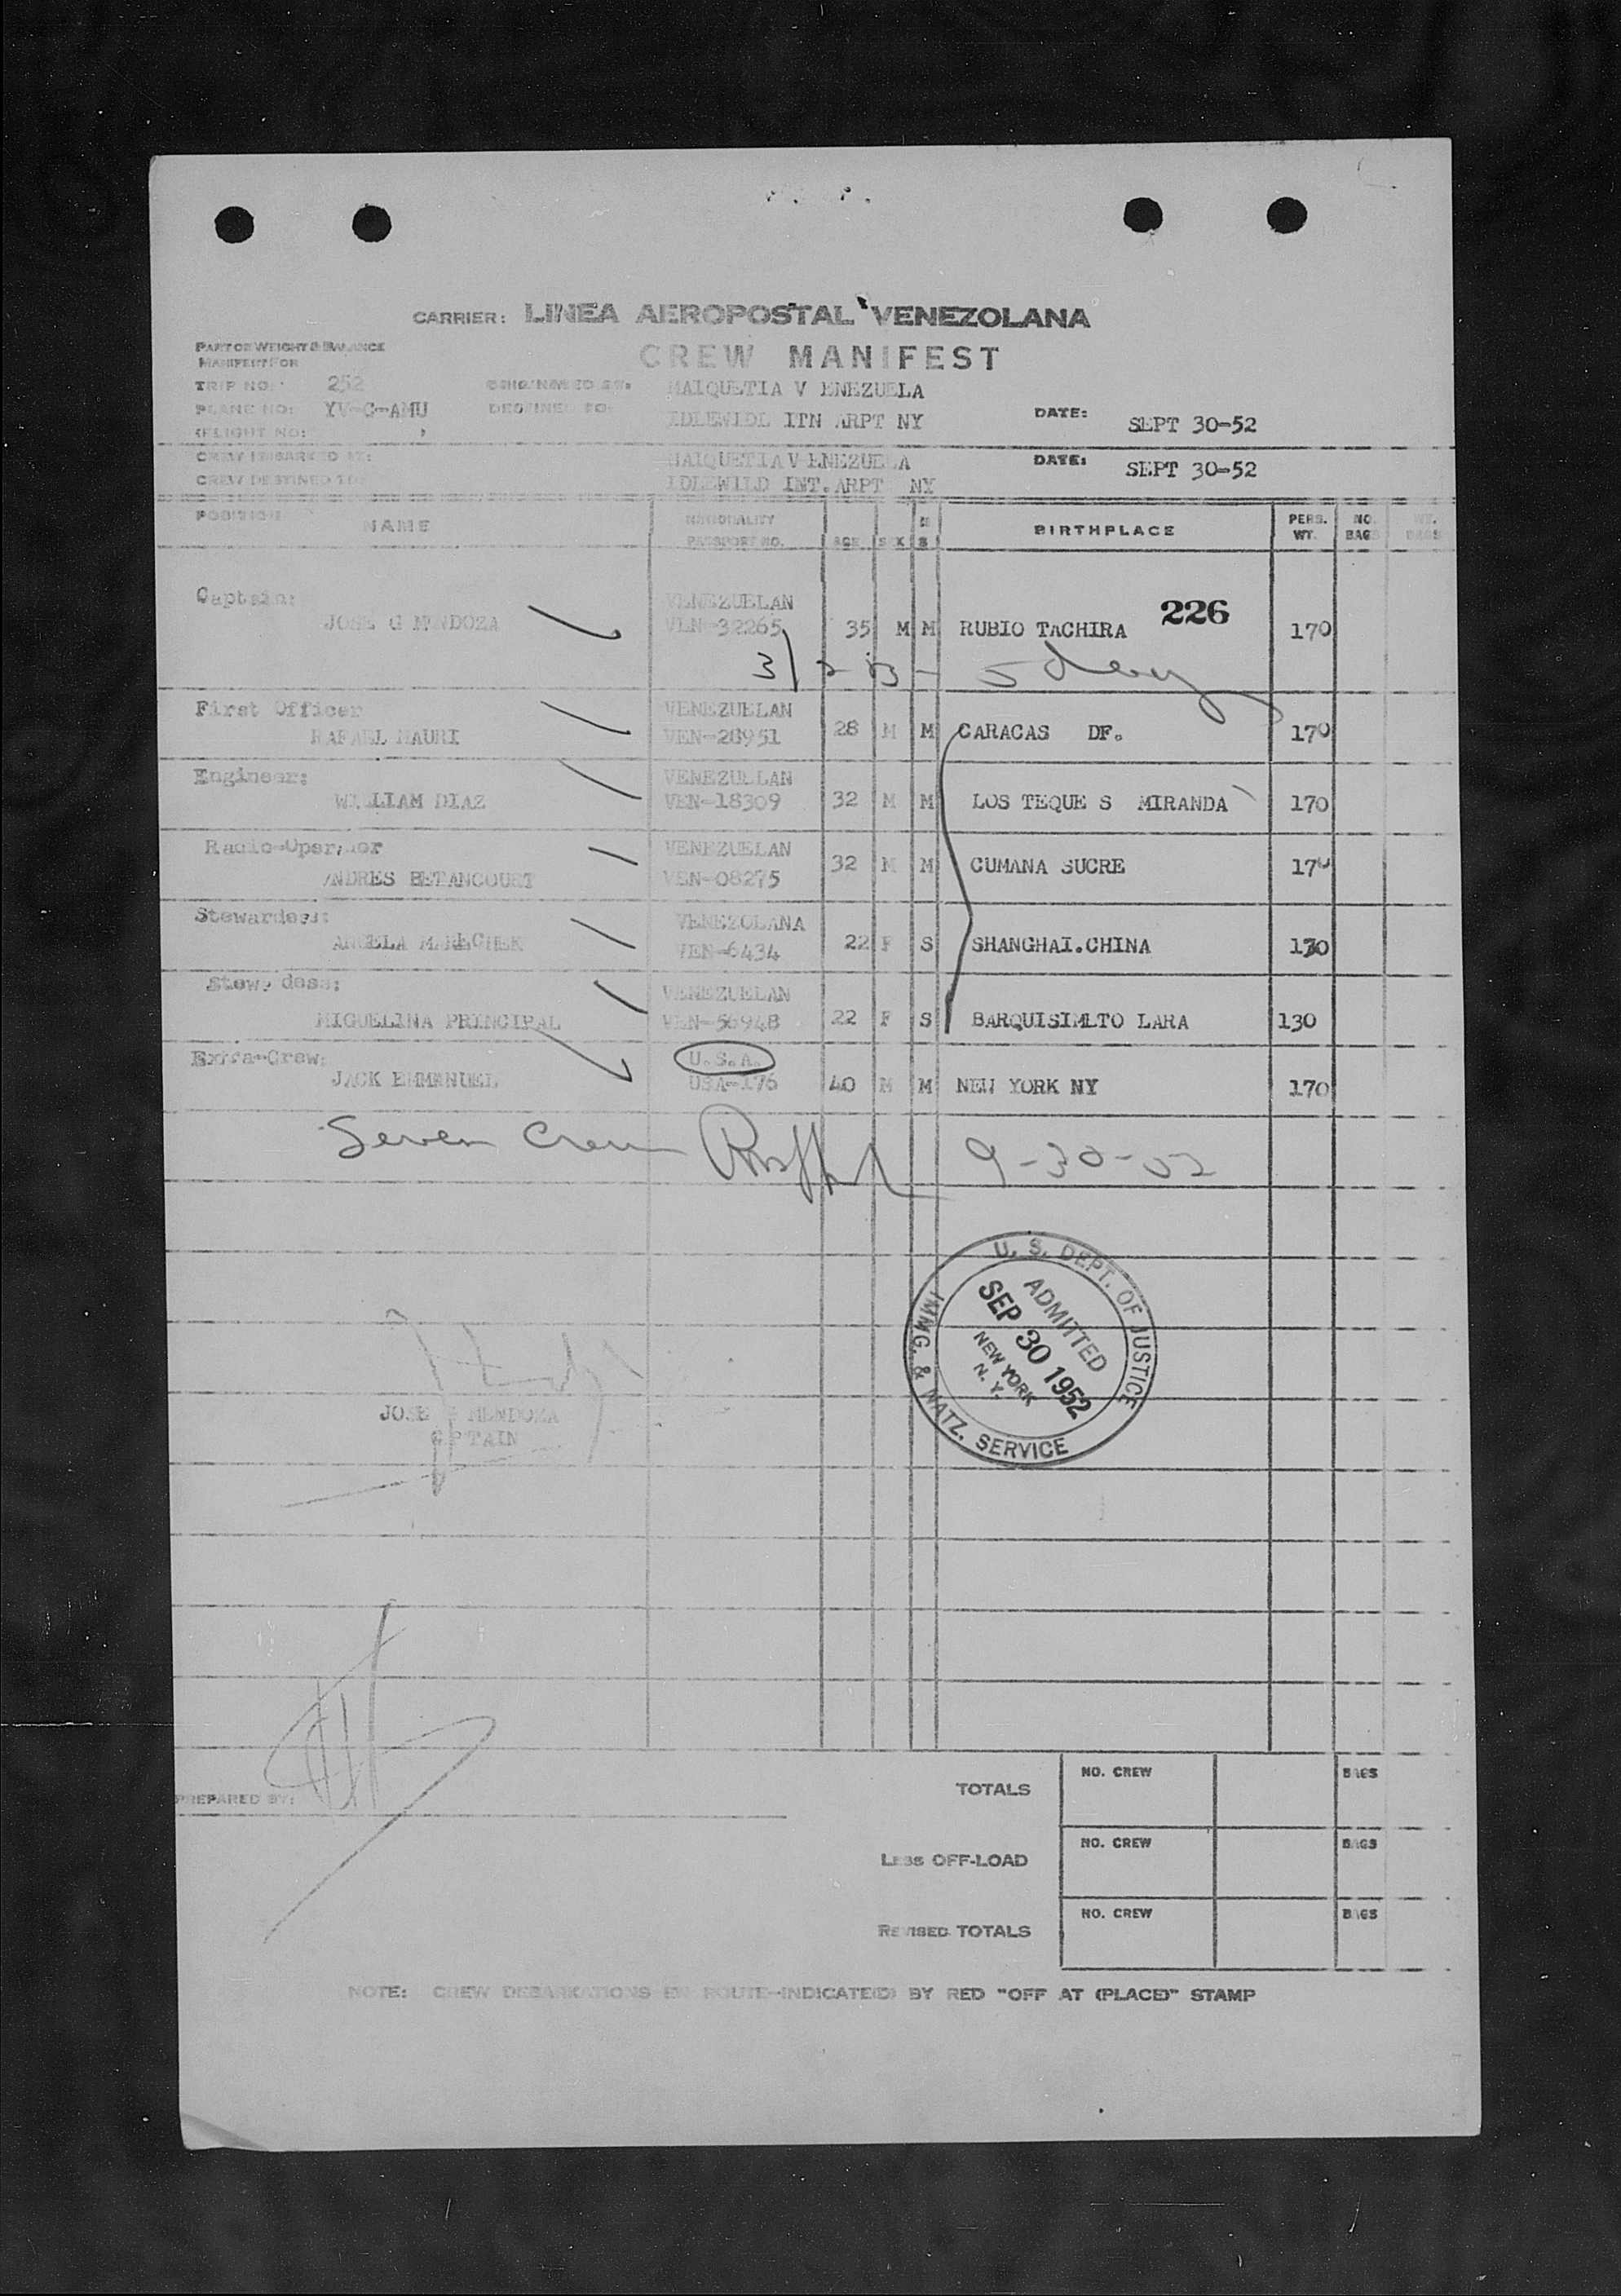 CARRIER: LINEA AEROPOSTAL VENEZOLANA
PART OF WEIGHT & BALANCE
MANIFEST FOR
CREW MANIFEST
TRIP NO: 252 ORIGINATED AT: MAIQUETIA V ENEZUELA
PLANE NO: YV-C-AMU DESTINED TO: IDLEWIDL ITN ARPT NY DATE: SEPT 30-52
(FLIGHT NO:
CREW EMBARKED AT: MAIQUETIA V ENEZUELA DATE: SEPT 30-52
CREW DESTINED TO: IDLEWILD INT.ARPT NY
POSITION NAME NATIONALITY PASSPORT NO. AGE SEX M S BIRTHPLACE PERS. WT. NO. BAGS WT. BAGS
Captain: VENEZUELAN 226
JOSE G MENDOZA VEN-32265 35 M M RUBIO TACHIRA 170
First Officer VENEZUELAN
RAFAEL MAURI VEN-28951 28 M M CARACAS DF. 170
Engineer: VENEZUELAN
WILLIAM DIAZ VEN-18309 32 M M LOS TEQUE S MIRANDA 170
Radio-Operator VENEZUELAN
ANDRES BETANCOURT VEN-08275 32 M M CUMANA SUCRE 170
Stewardess: VENEZOLANA
ANGELA MARECHEK VEN-6434 22 F S SHANGHAI.CHINA 130
Stewardess: VENEZUELAN
MIGUELINA PRINCIPAL VEN-56948 22 F S BARQUISIMETO LARA 130
Extra-Crew: U.S.A.
JACK EMMANUEL USA-176 40 M M NEW YORK NY 170
Seven Crew 9-30-52
U. S. DEPT. OF JUSTICE
ADMITTED
SEP 30 1952
NEW YORK
N. Y.
IMMG. & NATZ. SERVICE
JOSE G MENDOZA
CAPTAIN
PREPARED BY:
TOTALS NO. CREW BAGS
LESS OFF-LOAD NO. CREW BAGS
REVISED TOTALS NO. CREW BAGS
NOTE: CREW DEBARKATIONS EN ROUTE-INDICATE(D) BY RED "OFF AT (PLACE)" STAMP